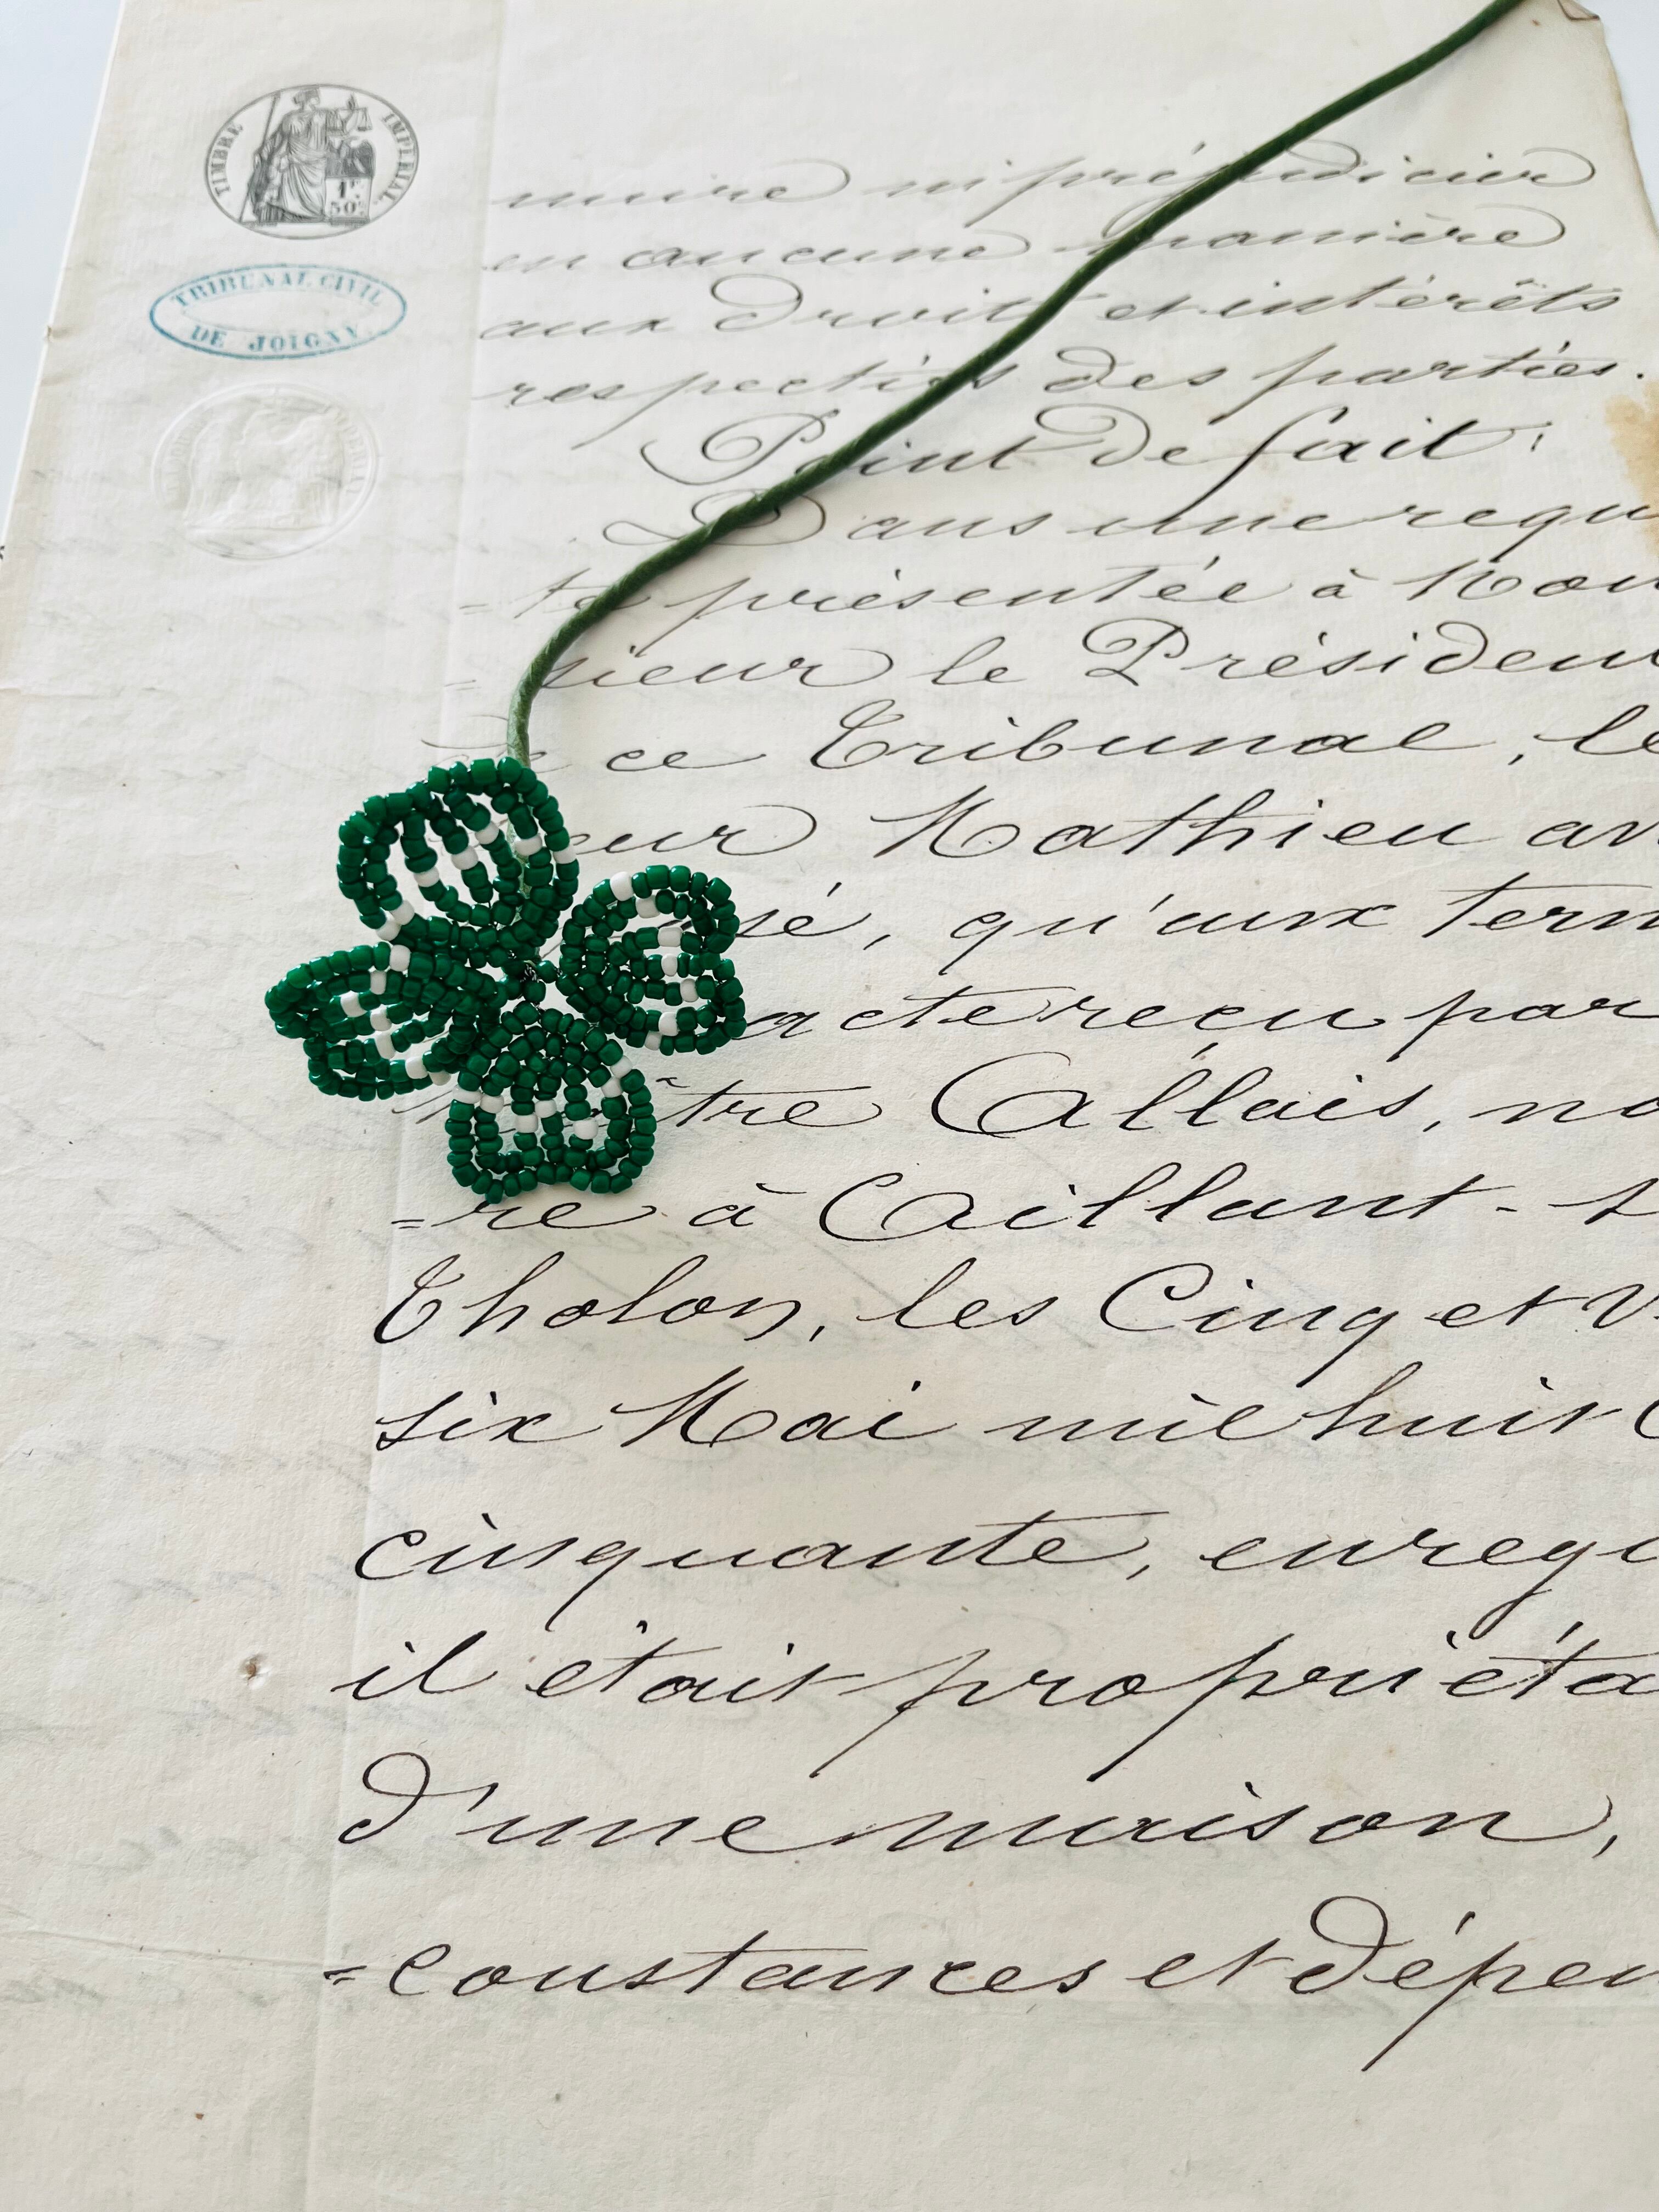 TIMBRE IMPERIAL
1F.
50C.
TRIBUNAL CIVIL
DE JOIGNY
nuire ni préjudicier
en aucune manière
aux Droits et intérêts
respectifs des parties.
Point de fait:
Dans une requ
=te présentée à Mon
=sieur le Présiden
de ce Tribunal, le
eur Mathieu av
sé, qu'aux term
acte reçu par
tre Allais, no
=re à Aillant-s
Tholon, les Cinq et v
six Mai mil huit c
cinquante, enregi
il était propriéta
d'une maison,
=constances et dépen